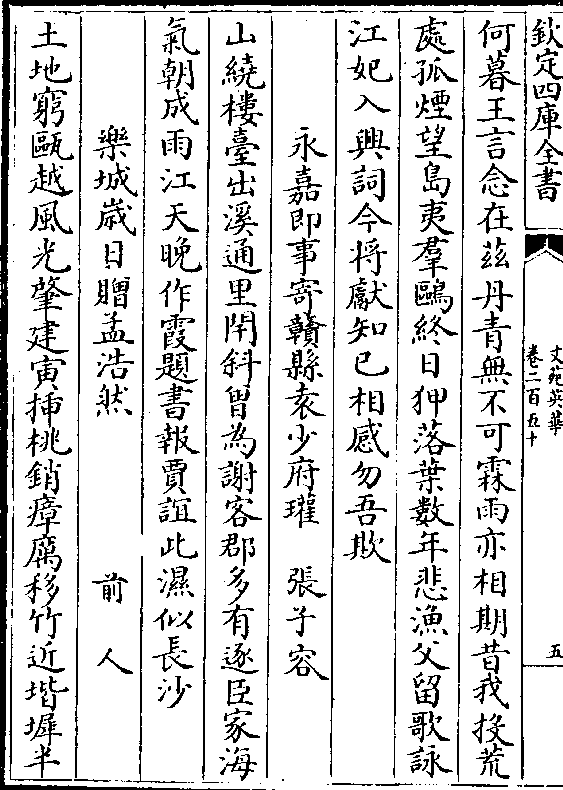 欽定四庫全書
文苑英華
卷二百五十
五
何暮王言念在茲丹青無不可霖雨亦相期昔我投荒
處孤煙望島夷羣鷗終日狎落葉數年悲漁父留歌詠
江妃入興詞今將獻知已相感勿吾欺
永嘉即事寄贛縣袁少府瓘 張子容
山繞樓臺出溪通里閈斜曾為謝客郡多有逐臣家海
氣朝成雨江天晚作霞題書報賈誼此濕似長沙
樂城歲日贈孟浩然 前人
土地窮甌越風光肇建寅揷桃銷瘴厲移竹近堦墀半